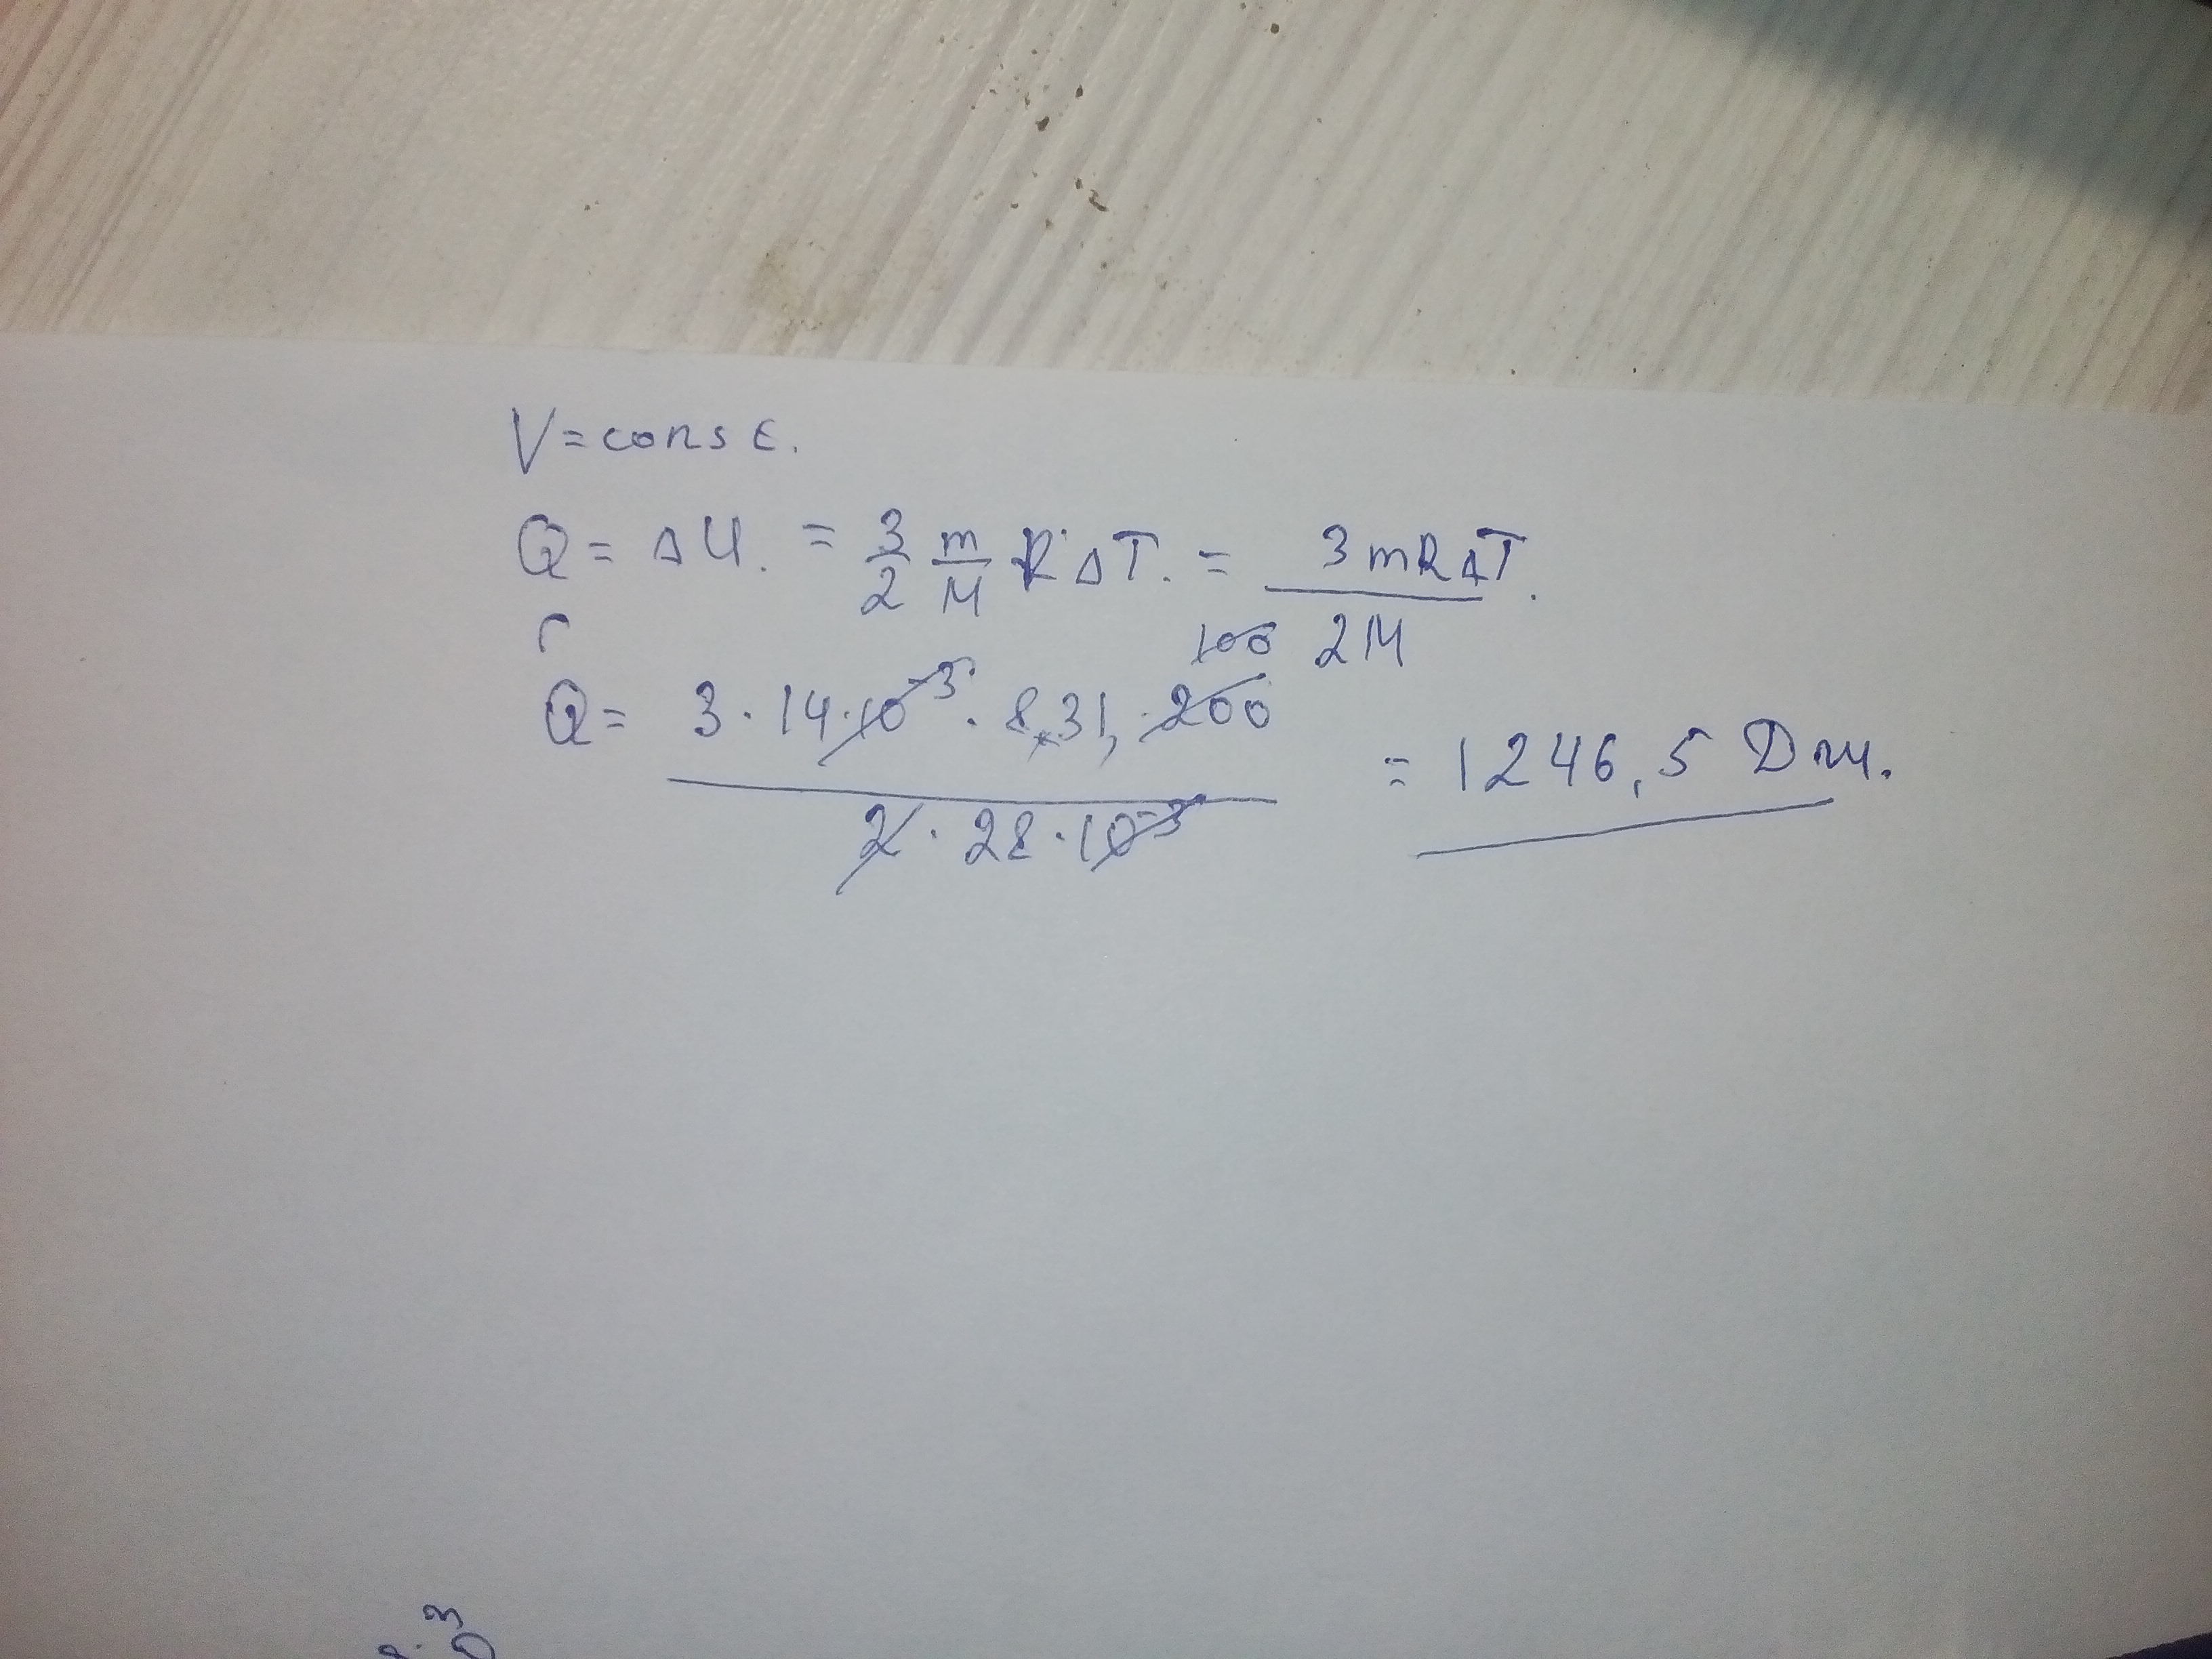 V = const.
Q = ΔU. = 3/2 m/M R ΔT. = 3mRΔT. / 2M
Q = 3 · 14 · 10⁻³ · 8,31 · 200 100 / 2 · 28 · 10⁻³ = 1246,5 Дж.